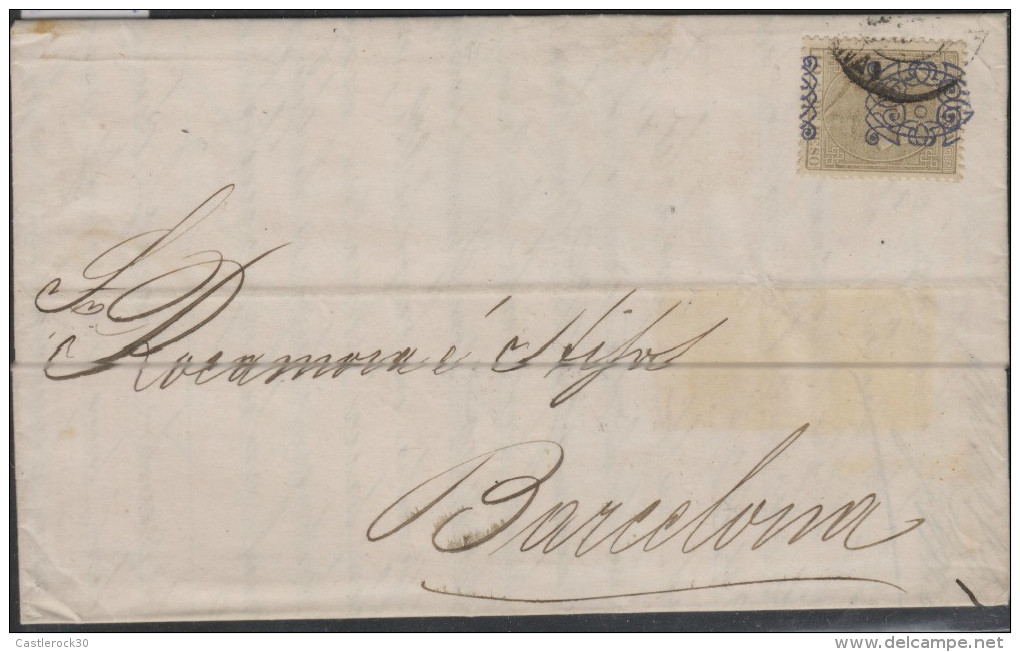 Rocamora é Hijos
Barcelona
Castlerock30
www.delcampe.net